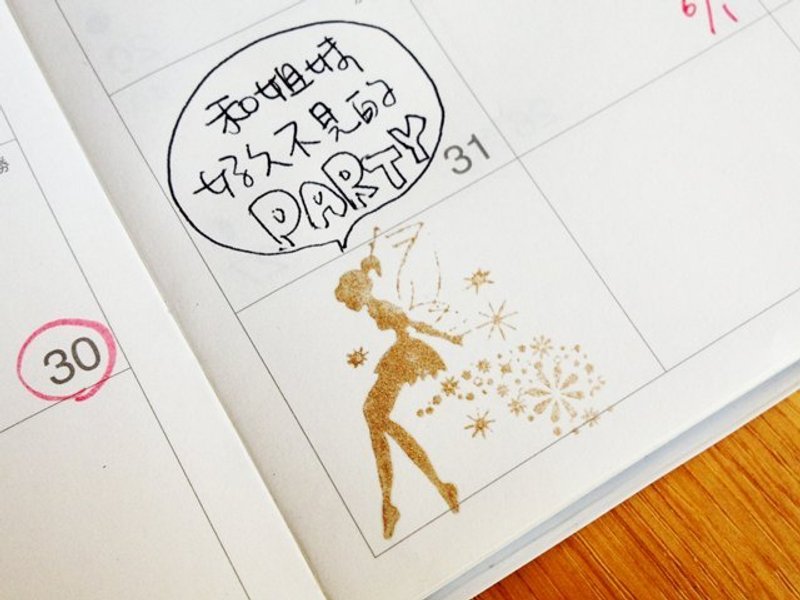 6/1
和姐妹
好久不見的
PARTY
31
30